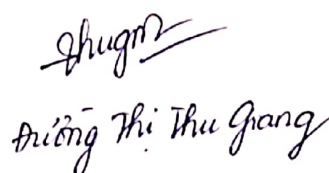 Thugm
Đường Thị Thu Giang